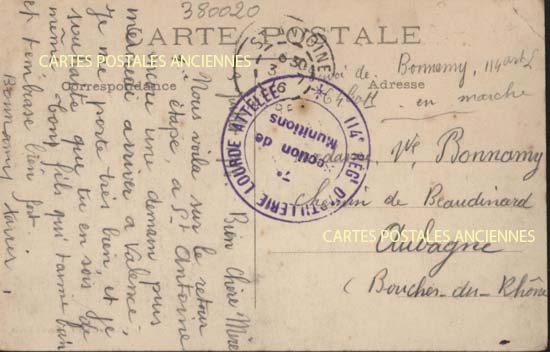 380020
CARTE POSTALE
Correspondance
Adresse
CARTES POSTALES ANCIENNES
CARTES POSTALES ANCIENNES
ANTOINE
114e REGt D'ARTILLERIE LOURDE ATTELÉE
7e
Section de
Munitions
Bonnamy, 114 art L
en marche
Vve Bonnamy
Chemin de Beaudinard
Aubagne
(Bouches-du-Rhône
Bien Chère Mère
Nous voilà sur le retour
étape, à St Antoine
une demain puis
mercredi arriver à Valence.
Je me porte très bien, et je
souhaite que tu en sois de
même. bon fils qui t'aime bien
et t'embrasse bien fort.
Bonnamy